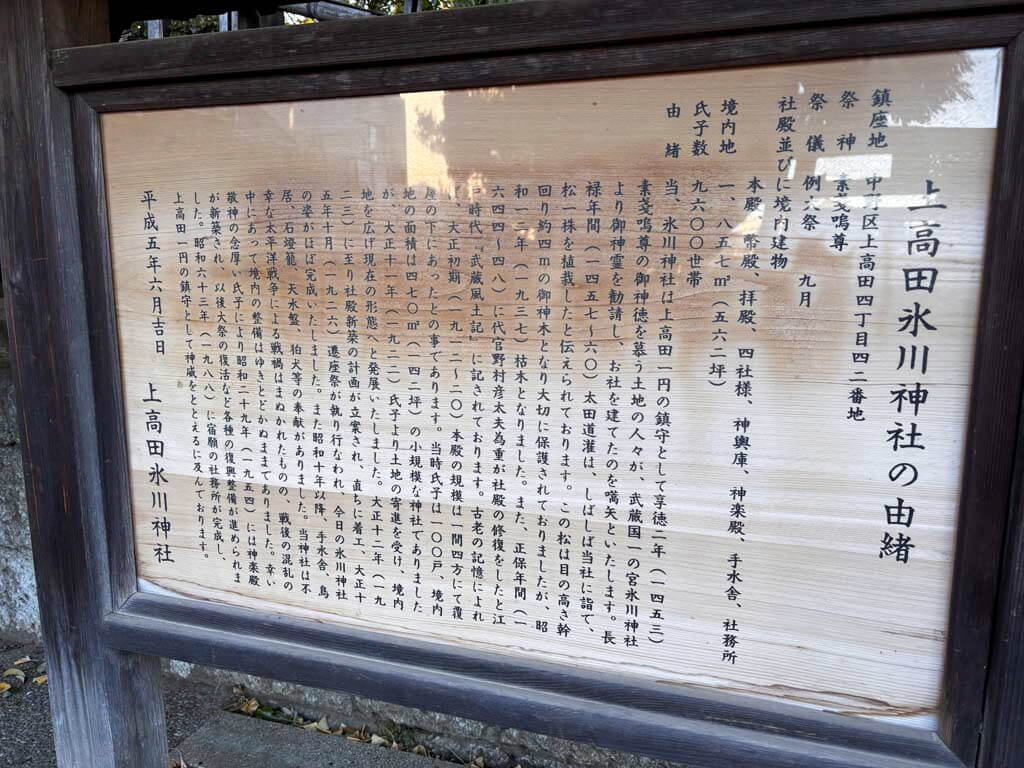 上高田氷川神社の由緒
鎮座地　中野区上高田四丁目四二番地
祭　神　素戔嗚尊
祭　儀　例大祭　九月
社殿並びに境内建物
本殿、幣殿、拝殿、四社様、神輿庫、神楽殿、手水舎、社務所
境内地　一、八五七㎡（五六二坪）
氏子数　九六〇〇世帯
由　緒　当、氷川神社は上高田一円の鎮守として享徳二年（一四五三）
素戔嗚尊の御神徳を慕う土地の人々が、武蔵国一の宮氷川神社
より御神霊を勧請し、お社を建てたのを嚆矢といたします。長
禄年間（一四五七～六〇）太田道灌は、しばしば当社に詣て、
松一株を植栽したと伝えられております。この松は目の高さ幹
回り約四ｍの御神木となり大切に保護されておりましたが、昭
和一二年（一九三七）枯木となりました。また、正保年間（一
六四四～四八）に代官野村彦太夫為重が社殿の修復をしたと江
戸時代『武蔵風土記』に記されております。古老の記憶によれ
ば、大正初期（一九一二～二〇）本殿の規模は一間四方にて覆
屋の下にあったとの事であります。当時氏子は一〇〇戸、境内
地の面積は四七〇㎡（一四二坪）の小規模な神社でありました
が、大正十一年（一九二二）氏子より土地の寄進を受け、境内
地を広げ現在の形態へと発展いたしました。大正十二年（一九
二三）に至り社殿新築の計画が立案され、直ちに着工、大正十
五年十月（一九二六）遷座祭が執り行なわれ、今日の氷川神社
の姿がほぼ完成いたしました。また昭和十年以降、手水舎、鳥
居、石燈籠、天水盤、狛犬等の奉献がありました。当神社は不
幸な太平洋戦争による戦禍はまぬかれたものの、戦後の混乱の
中にあって境内の整備はゆきとどかぬままでありました。幸い
敬神の念厚い氏子により昭和二十九年（一九五四）には神楽殿
が新築され、以後大祭の復活など各種の復興整備が進められま
した。昭和六十三年（一九八八）に宿願の社務所が完成し、
上高田一円の鎮守として神威をととえるに及んでおります。
平成五年六月吉日　上高田氷川神社